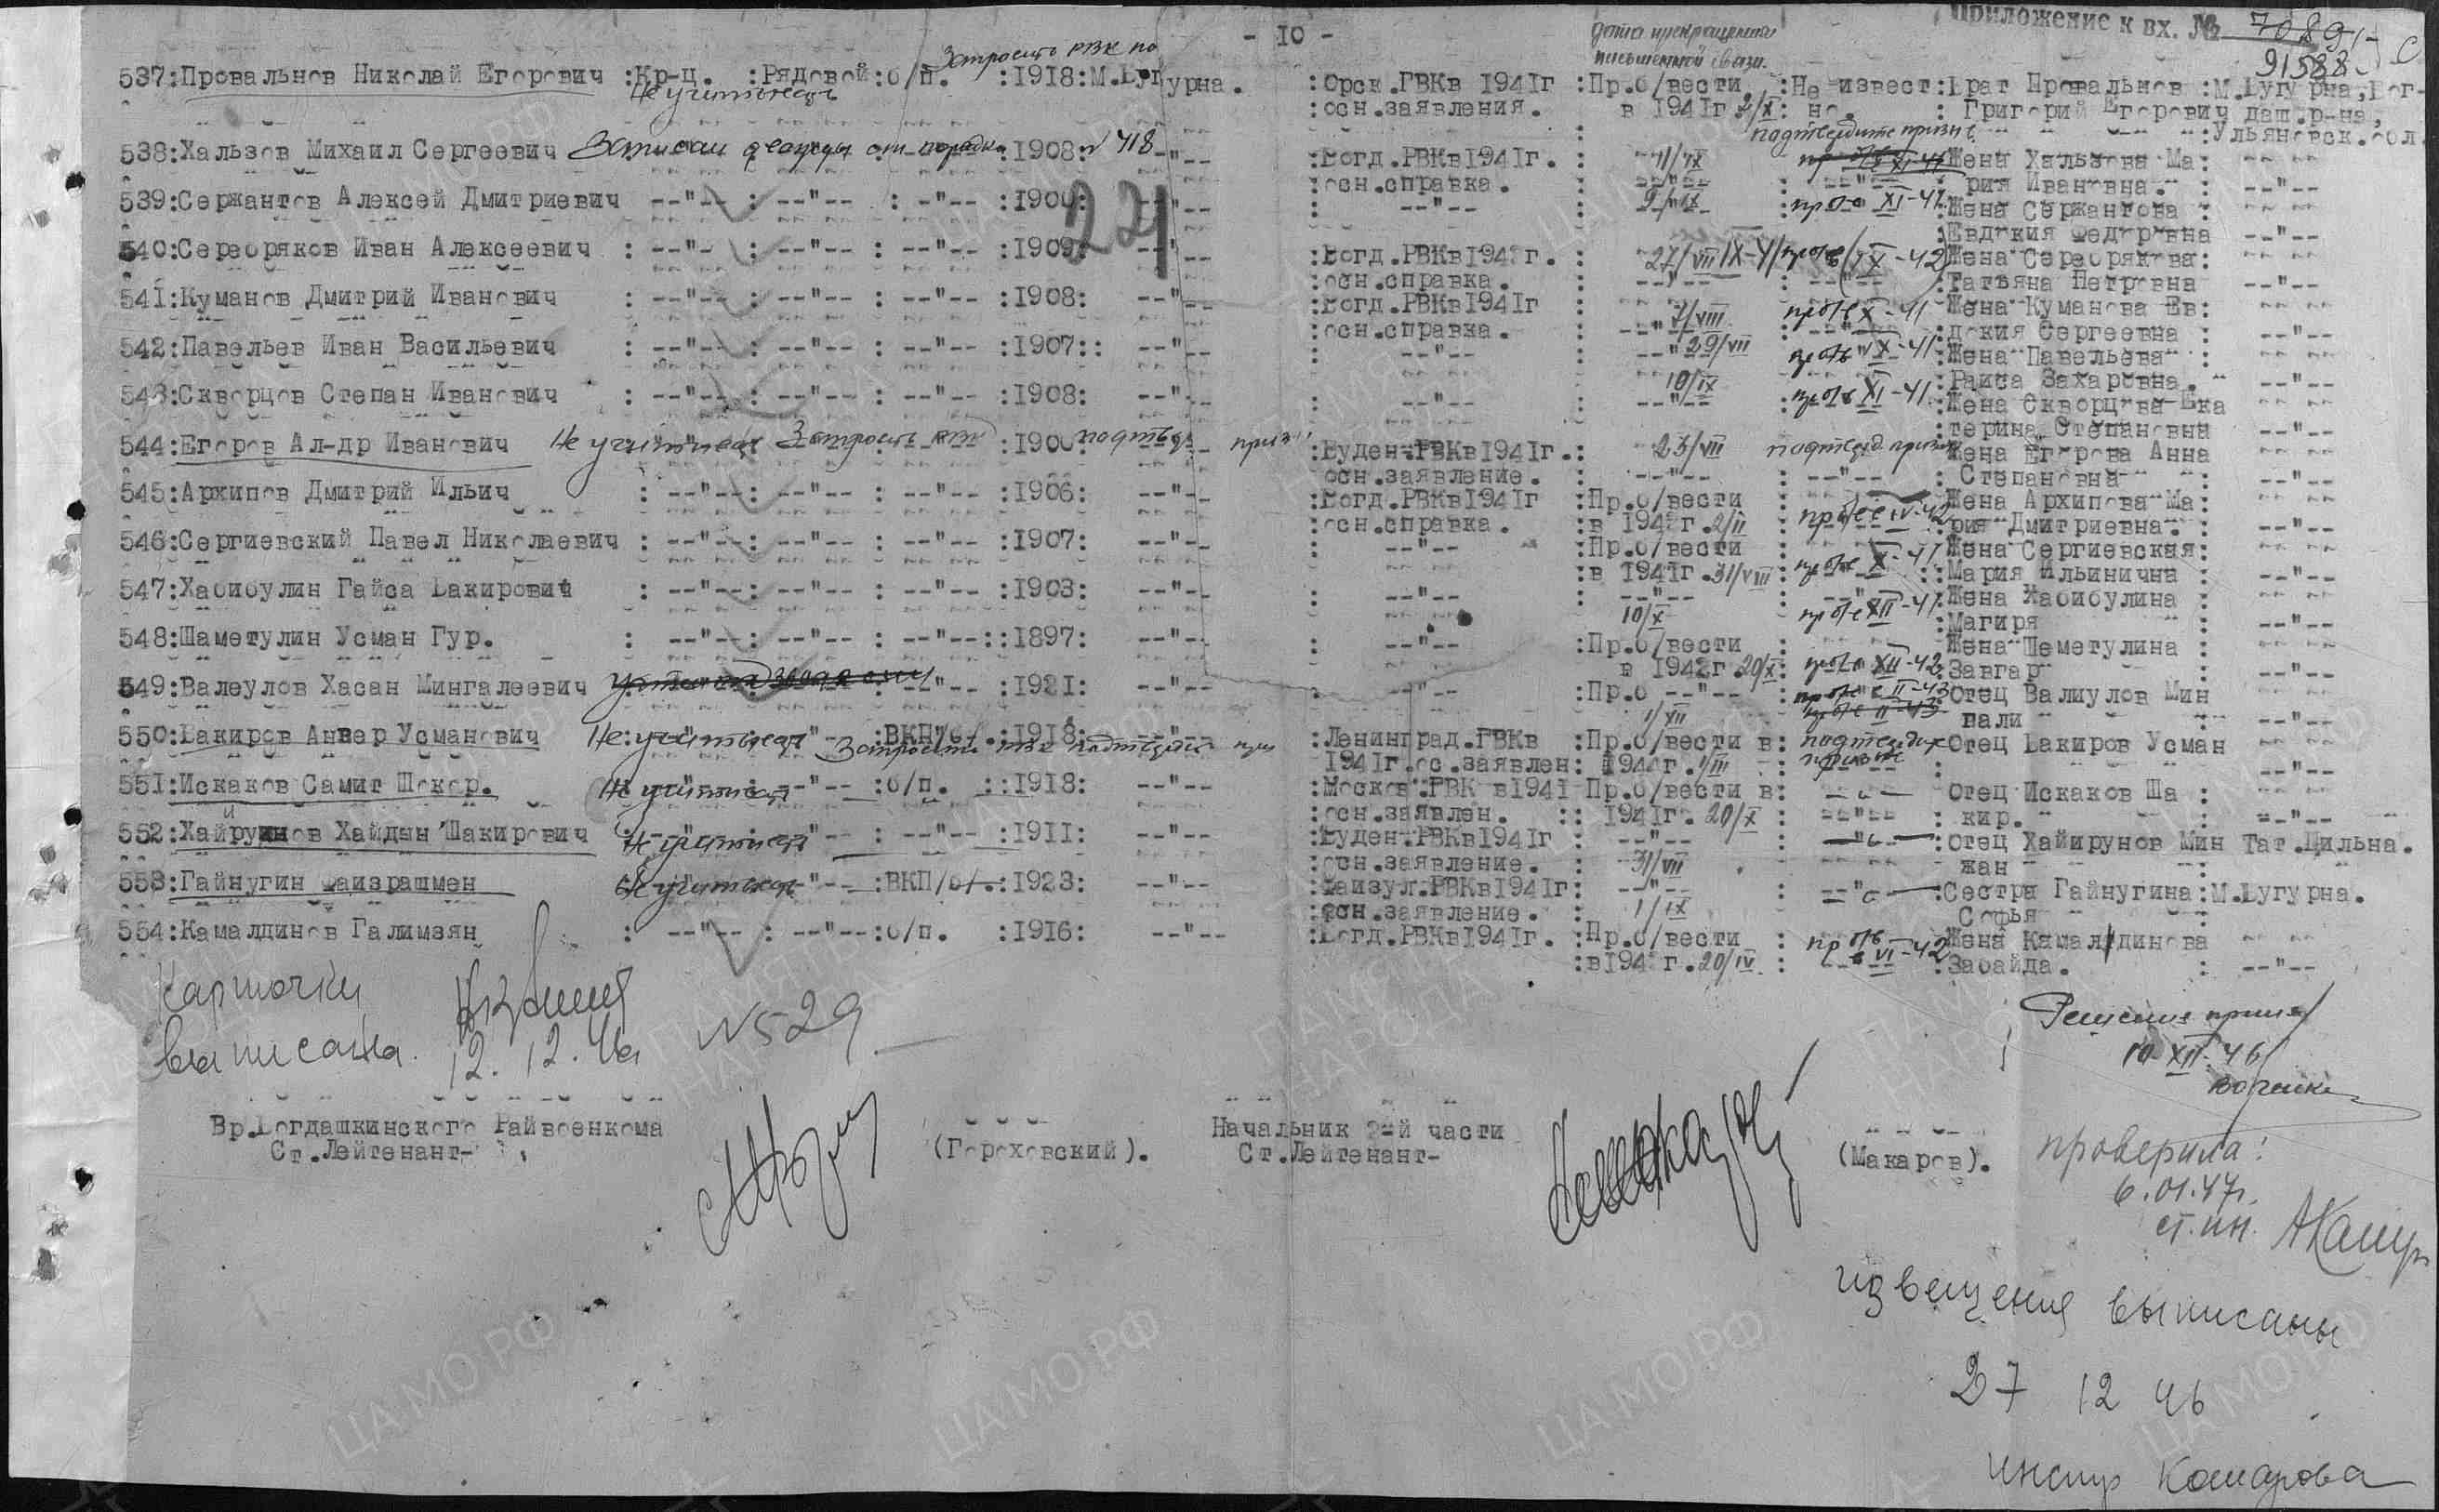 - 10 -
Приложение к вх. № 7089
91588 с
дата прекращения
письменной связи.
Запросить РВК по
537:Провальнов Николай Егорович :Кр-ц. :Рядовой:б/п. :1918:М.Бугурна. :Орск.ГВКв 1941г :Пр.б/вести :Не извест:Брат Провальнов :М.Бугурна,Бог-
Не учитывать
:осн.заявления. в 1941г 2/X : но. : Григорий Егорович даш.р-на,
подтвердите призыв :Ульяновск.обл.
538:Хальзов Михаил Сергеевич Записан дважды от порядк :1908: № 418 --"-- :Богд.РВКв1941г. : 11/IX Жена Хальзова Ма: --"--
:осн.справка. : --"-- : --"-- : рия Ивановна. : --"--
539:Сержантов Алексей Дмитриевич --"-- : --"-- : --"-- :1900: --"-- : --"-- : 9/IX пр.б/в XI-41 :Жена Сержантова :
221
:Евдокия Федоровна --"--
540:Серебряков Иван Алексеевич : --"-- : --"-- : --"-- :1909: --"-- :Богд.РВКв194 г. : 27/VII пр б/в X-42 Жена Серебрякова:
:осн.справка. : --"-- : --"-- :Татьяна Петровна --"--
541:Куманов Дмитрий Иванович : --"-- : --"-- : --"-- :1908: --"-- :Богд.РВКв1941г 7/VIII пр б/в X-41 Жена Куманова Ев:
:осн.справка. : --"-- : --"-- :докия Сергеевна : --"--
542:Павельев Иван Васильевич : --"-- : --"-- : --"-- :1907:: --"-- : --"-- : --"-- 29/VII пр б/в X-41 :Жена Павельева :
10/IX :Раиса Захаровна. --"--
543:Скворцов Степан Иванович : --"-- : --"-- : --"-- :1908: --"-- : --"-- : --"-- :пр б/в XI-41 :Жена Скворцова Ека
:терина Степановна --"--
544:Егоров Ал-др Иванович Не учитывать Запросить РВК :1900: подтвер. приз :Буден.РВКв1941г.: 23/VII подтверд. призыв Жена Егорова Анна
осн.заявление. : --"-- : --"-- : Степановна : --"--
545:Архипов Дмитрий Ильич : --"-- : --"-- : --"-- :1906: --"-- :Богд.РВКв1941г :Пр.б/вести : :Жена Архипова Ма:
:осн.справка. :в 194 г.2/II : пр б/в IV-42 :рия Дмитриевна. : --"--
546:Сергиевский Павел Николаевич : --"-- : --"-- : --"-- :1907: --"-- : --"-- :Пр.б/вести : :Жена Сергиевская:
:в 1941г.31/VIII :пр б/в X-41 :Мария Ильинична : --"--
547:Хабибулин Гайса Бакирович : --"-- : --"-- : --"-- :1903: --"-- : --"-- : --"-- : --"-- :Жена Хабибулина :
10/X пр б/в XII-41 :Магиря : --"--
548:Шаметулин Усман Гур. : --"-- : --"-- : --"--::1897: --"-- : --"-- :Пр.б/вести : :Жена Шеметулина :
в 1942г.20/X: пр б/в XII-42 :Завгар : --"--
549:Валеулов Хасан Мингалеевич --"-- :1921: --"-- : --"-- :Пр.б --"-- : пр б/в II-43 Отец Валиулов Мин
1/XII вали : --"--
550:Бакиров Анвар Усманович Не учитывать :ВКП/б/.:1918: --"-- :Ленинград.ГВКв :Пр.б/вести в: подтвердить Отец Бакиров Усман
Запросить РВК подтвердить приз
1941г.ос.заявлен: 194 г.1/III : призыв : --"--
551:Искаков Самит Шокор. Не учитывать --"-- :б/п. ::1918: --"-- :Москов.РВК в1941 Пр.б/вести в: --"-- Отец Искаков Ша :
:осн.заявлен. :: 1941г. 20/X : --"-- : кир. : --"--
552:Хайруинов Хайдын Шакирович Не учитывать --"-- : --"-- :1911: --"-- :Буден.РВКв1941г : --"-- : --"-- :Отец Хайирунов Мин Тат.Цильна.
:осн.заявление. : 31/VII жан :
553:Гайнугин Фаизрашмен Не учитывать --"-- :ВКП/б/.:1923: --"-- :Фаизул.РВКв1941г: --"-- : --"-- :Сестра Гайнугина:М.Бугурна.
:осн.заявление. : 1/IX Софья :
554:Камалдинов Галимзян : --"-- : --"--:б/п. :1916: --"-- :Богд.РВКв1941г. :Пр.б/вести : пр б/в VI-42 Жена Камалдинова
:в194 г.20/IV : :Забайда. : --"--
Карточки
выписала.
12.12.46г
№529
Решение принял
10 XII-46
Вр.Богдашкинского Райвоенкома
Ст.Лейтенант-
(Гороховский).
Начальник 2-й части
Ст.Лейтенант-
(Макаров).
проверила:
6.01.47г.
ст.ин.
извещения выписаны
27 12 46
инспр Комарова
ЦА МО РФ
ПАМЯТЬ НАРОДА